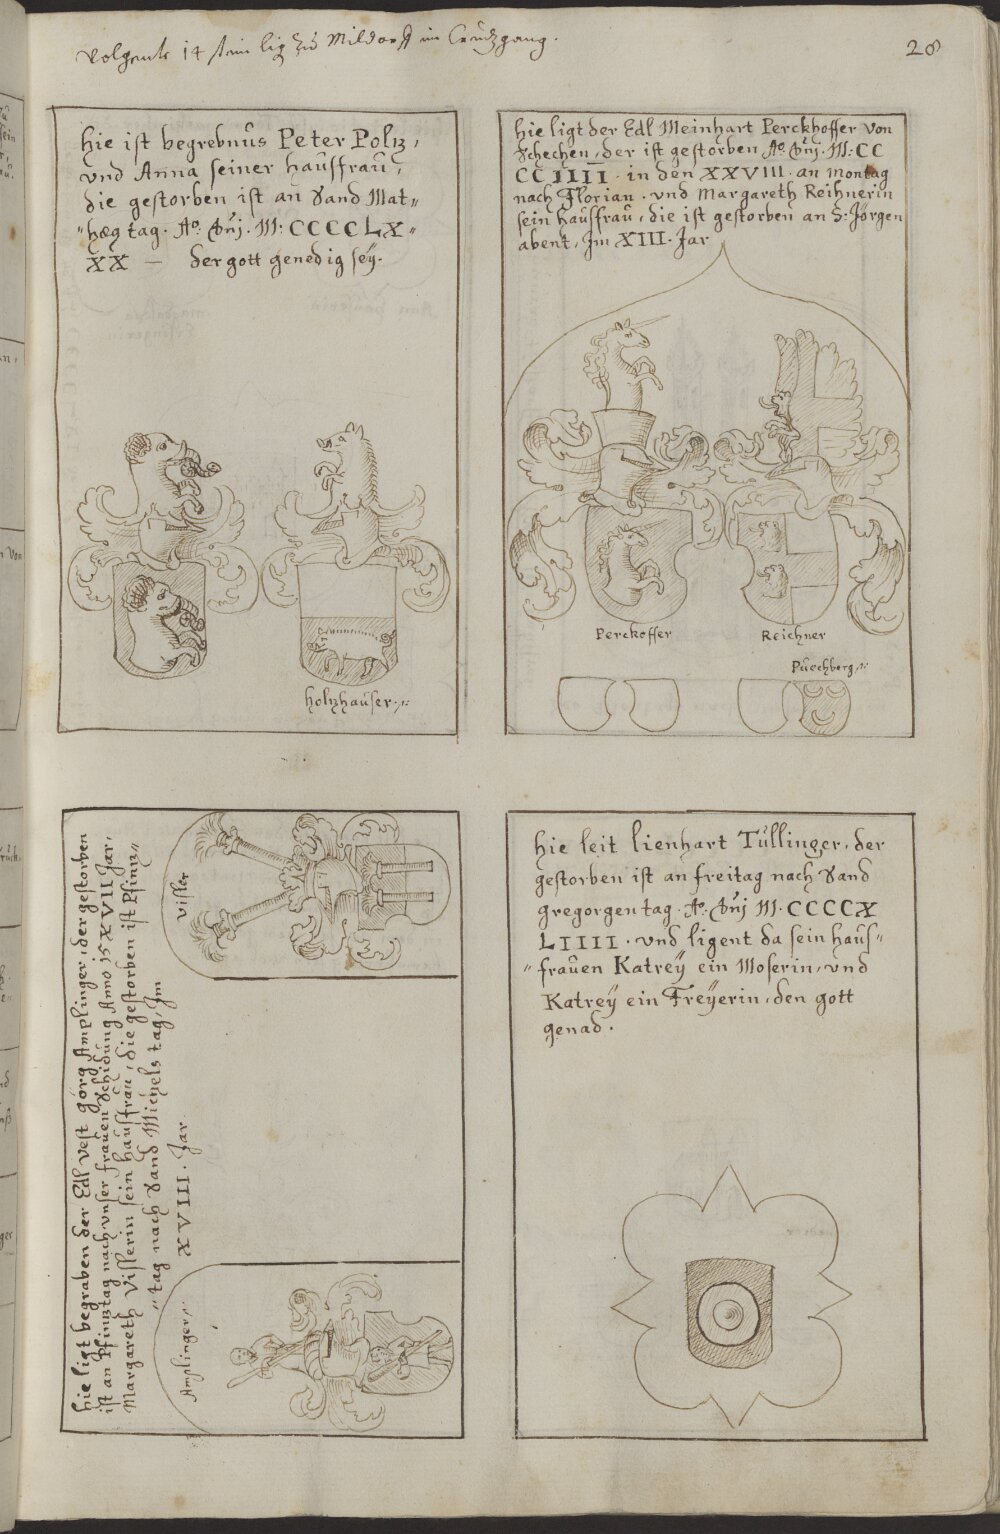 Volgende 14 stain lig zu Mildorff im Creuzgang.
28
hie ist begrebnus Peter Polz,
vnd Anna seiner hausfrau,
die gestorben ist an Sand Mat„
„hæg tag. Ao. Dnj. M: CCCCLX„
XX — der gott genedig sey.
holzhauser.
hie ligt der Edl Meinhart Perckhoffer von
Schechen, der ist gestorben Ao. Dnj. M: CC
CCIIII. in den XXVIII. an montag
nach Florian. vnd Margareth Reihnerin
sein hausfrau, die ist gestorben an S. Jörgen
abent, Jm XIII. Jar
Perckoffer
Reichner
Puechberg
hie ligt begraben der Edl vest görg Amplinger, der gestorben
ist an Pfinztag nach vnser frauen Schidung Anno 15XVII Jar,
Margareth Vislerin sein hausfrau, die gestorben ist Pfinz„
„tag nach Sand Michels tag, Jm
XVIII. Jar
Visler
Amplinger
hie leit lienhart Tullinger, der
gestorben ist an freitag nach Sand
gregorgen tag. Ao. Dnj M. CCCCX
LIIII. vnd ligent da sein haus„
„frauen Katreÿ ein Moserin, vnd
Katreÿ ein Freÿerin, den gott
genad.